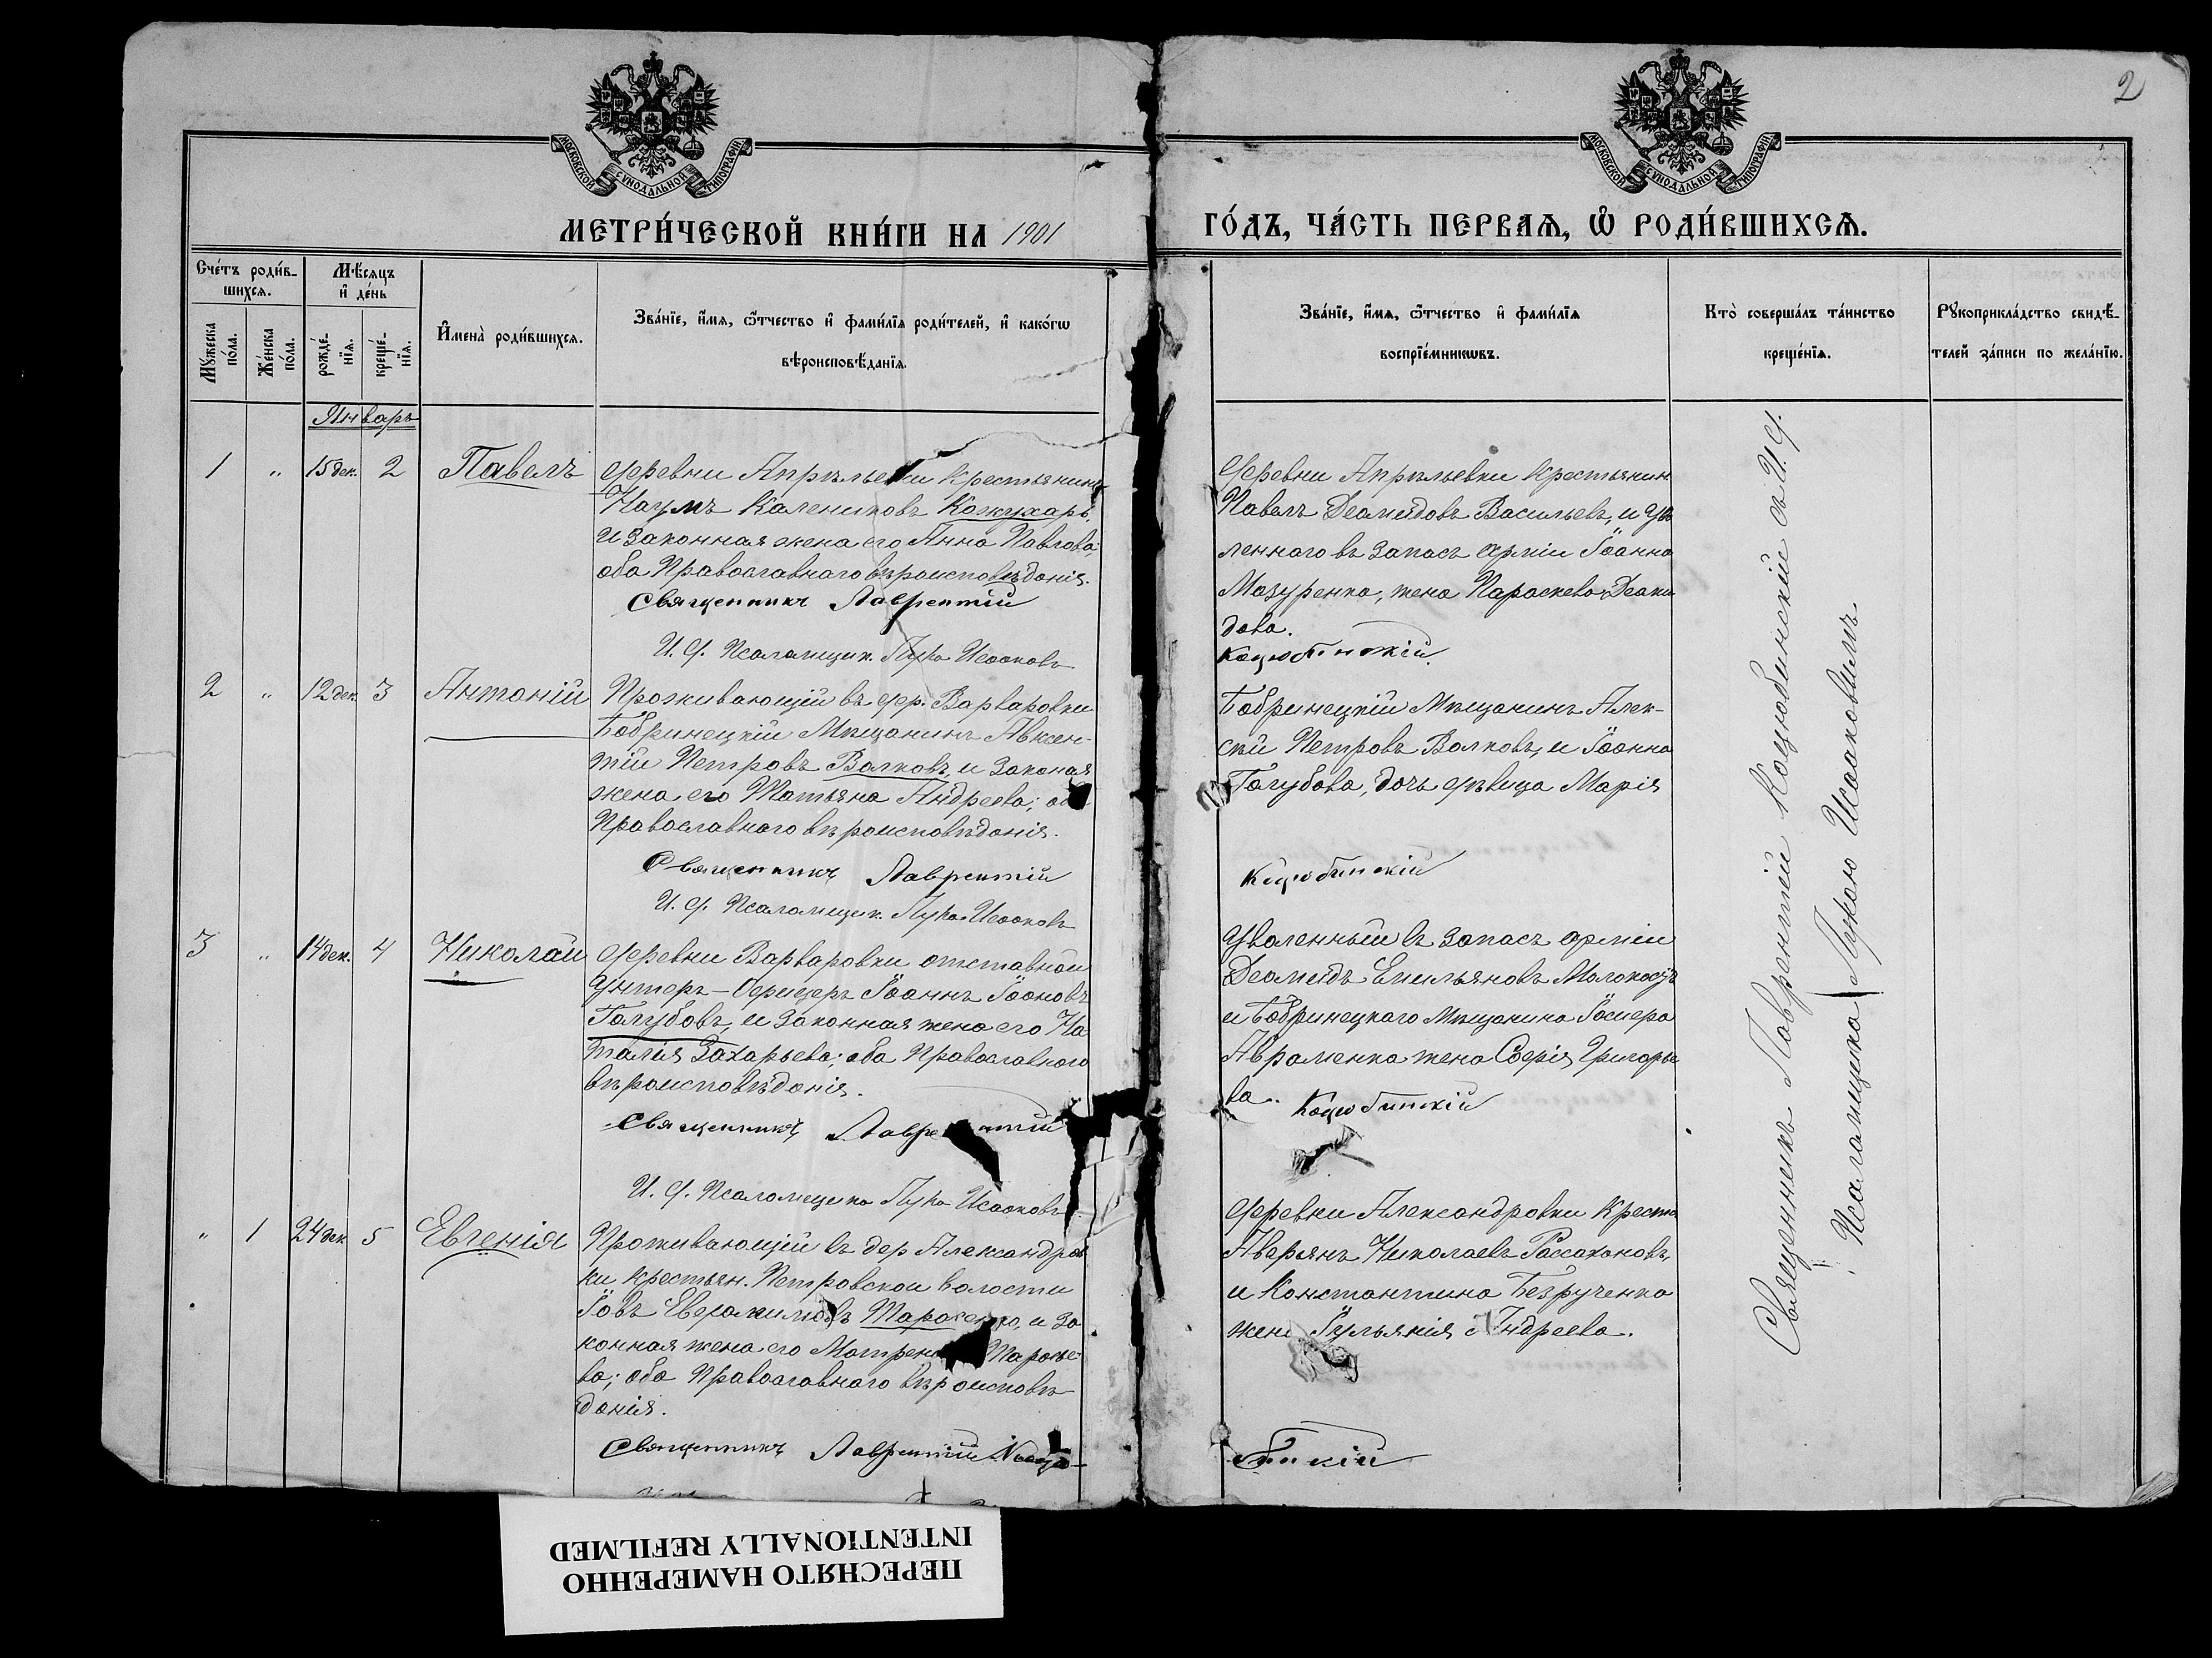 2
МОСКОВСКОЙ СѴНОДАЛЬНОЙ ТИПОГРАФІИ
МОСКОВСКОЙ СѴНОДАЛЬНОЙ ТИПОГРАФІИ
МЕТРИ́ЧЕСКОЙ КНИ́ГИ НА 1901
ГО́ДЪ, ЧА́СТЬ ПЕРВАѦ, Ѡ҆ РОДИ́ВШИХСѦ.
Сче́тъ роди́в-
шихсѧ.
Мѣ́сѧцъ
и҆ де́нь
Мꙋжеска
по́ла.
Же́нска
по́ла.
рожде́-
нїѧ.
креще́-
нїѧ.
И҆мена̀ роди́вшихсѧ.
Зва́нїе, и҆́мѧ, ѻ҆́тчество и҆ фами́лїѧ роди́телей, и҆ како́гѡ
вѣроисповѣ́данїѧ.
Зва́нїе, и҆́мѧ, ѻ҆́тчество и҆ фами́лїѧ
воспрїе́мникѡвъ.
Кто̀ соверша́лъ та́инство
креще́нїѧ.
Рꙋкоприкла́дство свидѣ́-
телей за́писи по жела́нїю.
Январь
1 " 15 дек. 2 Павелъ
деревни Апрѣльевки крестьянинъ
Наумъ Калениковъ Кожухарь,
и законная жена его Анна Павлова;
оба Православнаго вѣроисповѣданія.
Священникъ Лаврентій
И. д. Псаломщик. Лука Исааковъ
деревни Апрѣльевки крестьянин
Павелъ Деомидовъ Васильевъ, и ув
леннаго въ запасъ арміи Іоанна
Мазуренка, жена Параскева Деоми
дова.
Коцюбинскій
2 " 12 дек. 3 Антоній
Проживающій въ дер. Варваровки
Бобринецкій Мѣщанинъ Авксен-
тій Петровъ Волковъ, и законая
жена его Татьяна Андреева;
Православнаго вѣроисповѣданія.
Священникъ Лаврентій
И. д. Псаломщик. Лука Исааковъ
Бобринецкій Мѣщанинъ Алек-
сѣй Петровъ Волковъ, и Іоанна
Голубова, дочь дѣвица Марія
Коцюбинскій
3 " 14 дек. 4 Николай
деревни Варваровки отставной
Унтеръ-Офицеръ Іоаннъ Іоановъ
Голубовъ, и законная жена его На
талія Захарьева; оба Православнаго
вѣроисповѣданія.
Священникъ Лаврентій
И. д. Псаломщика Лука Исааковъ
Уволенный въ запасъ арміи
Деомидъ Емильяновъ
и Бобринецкаго Мѣщанина
Авраменка жена Софія Григорье
ва. Коцюбинскій
" 1 24 дек. 5 Евгенія
Проживающій въ дер Александров
ки крестьян. Петровской волости
Іовъ Тарасенко, и за
конная жена его Матрена
ва; оба Православнаго вѣроисповѣ-
данія.
Священникъ Лаврентій Коцю-
деревни Александровки Кресть
Аверьянъ Николаевъ
и Константина Безрученка
жена Іульянія Андреева.
бинскій
Священникъ Лаврентій Коцюбинскій съ И. д.
Псаломщика Лукою Исааковымъ
ПЕРЕСНЯТО НАМЕРЕННО
INTENTIONALLY REFILMED